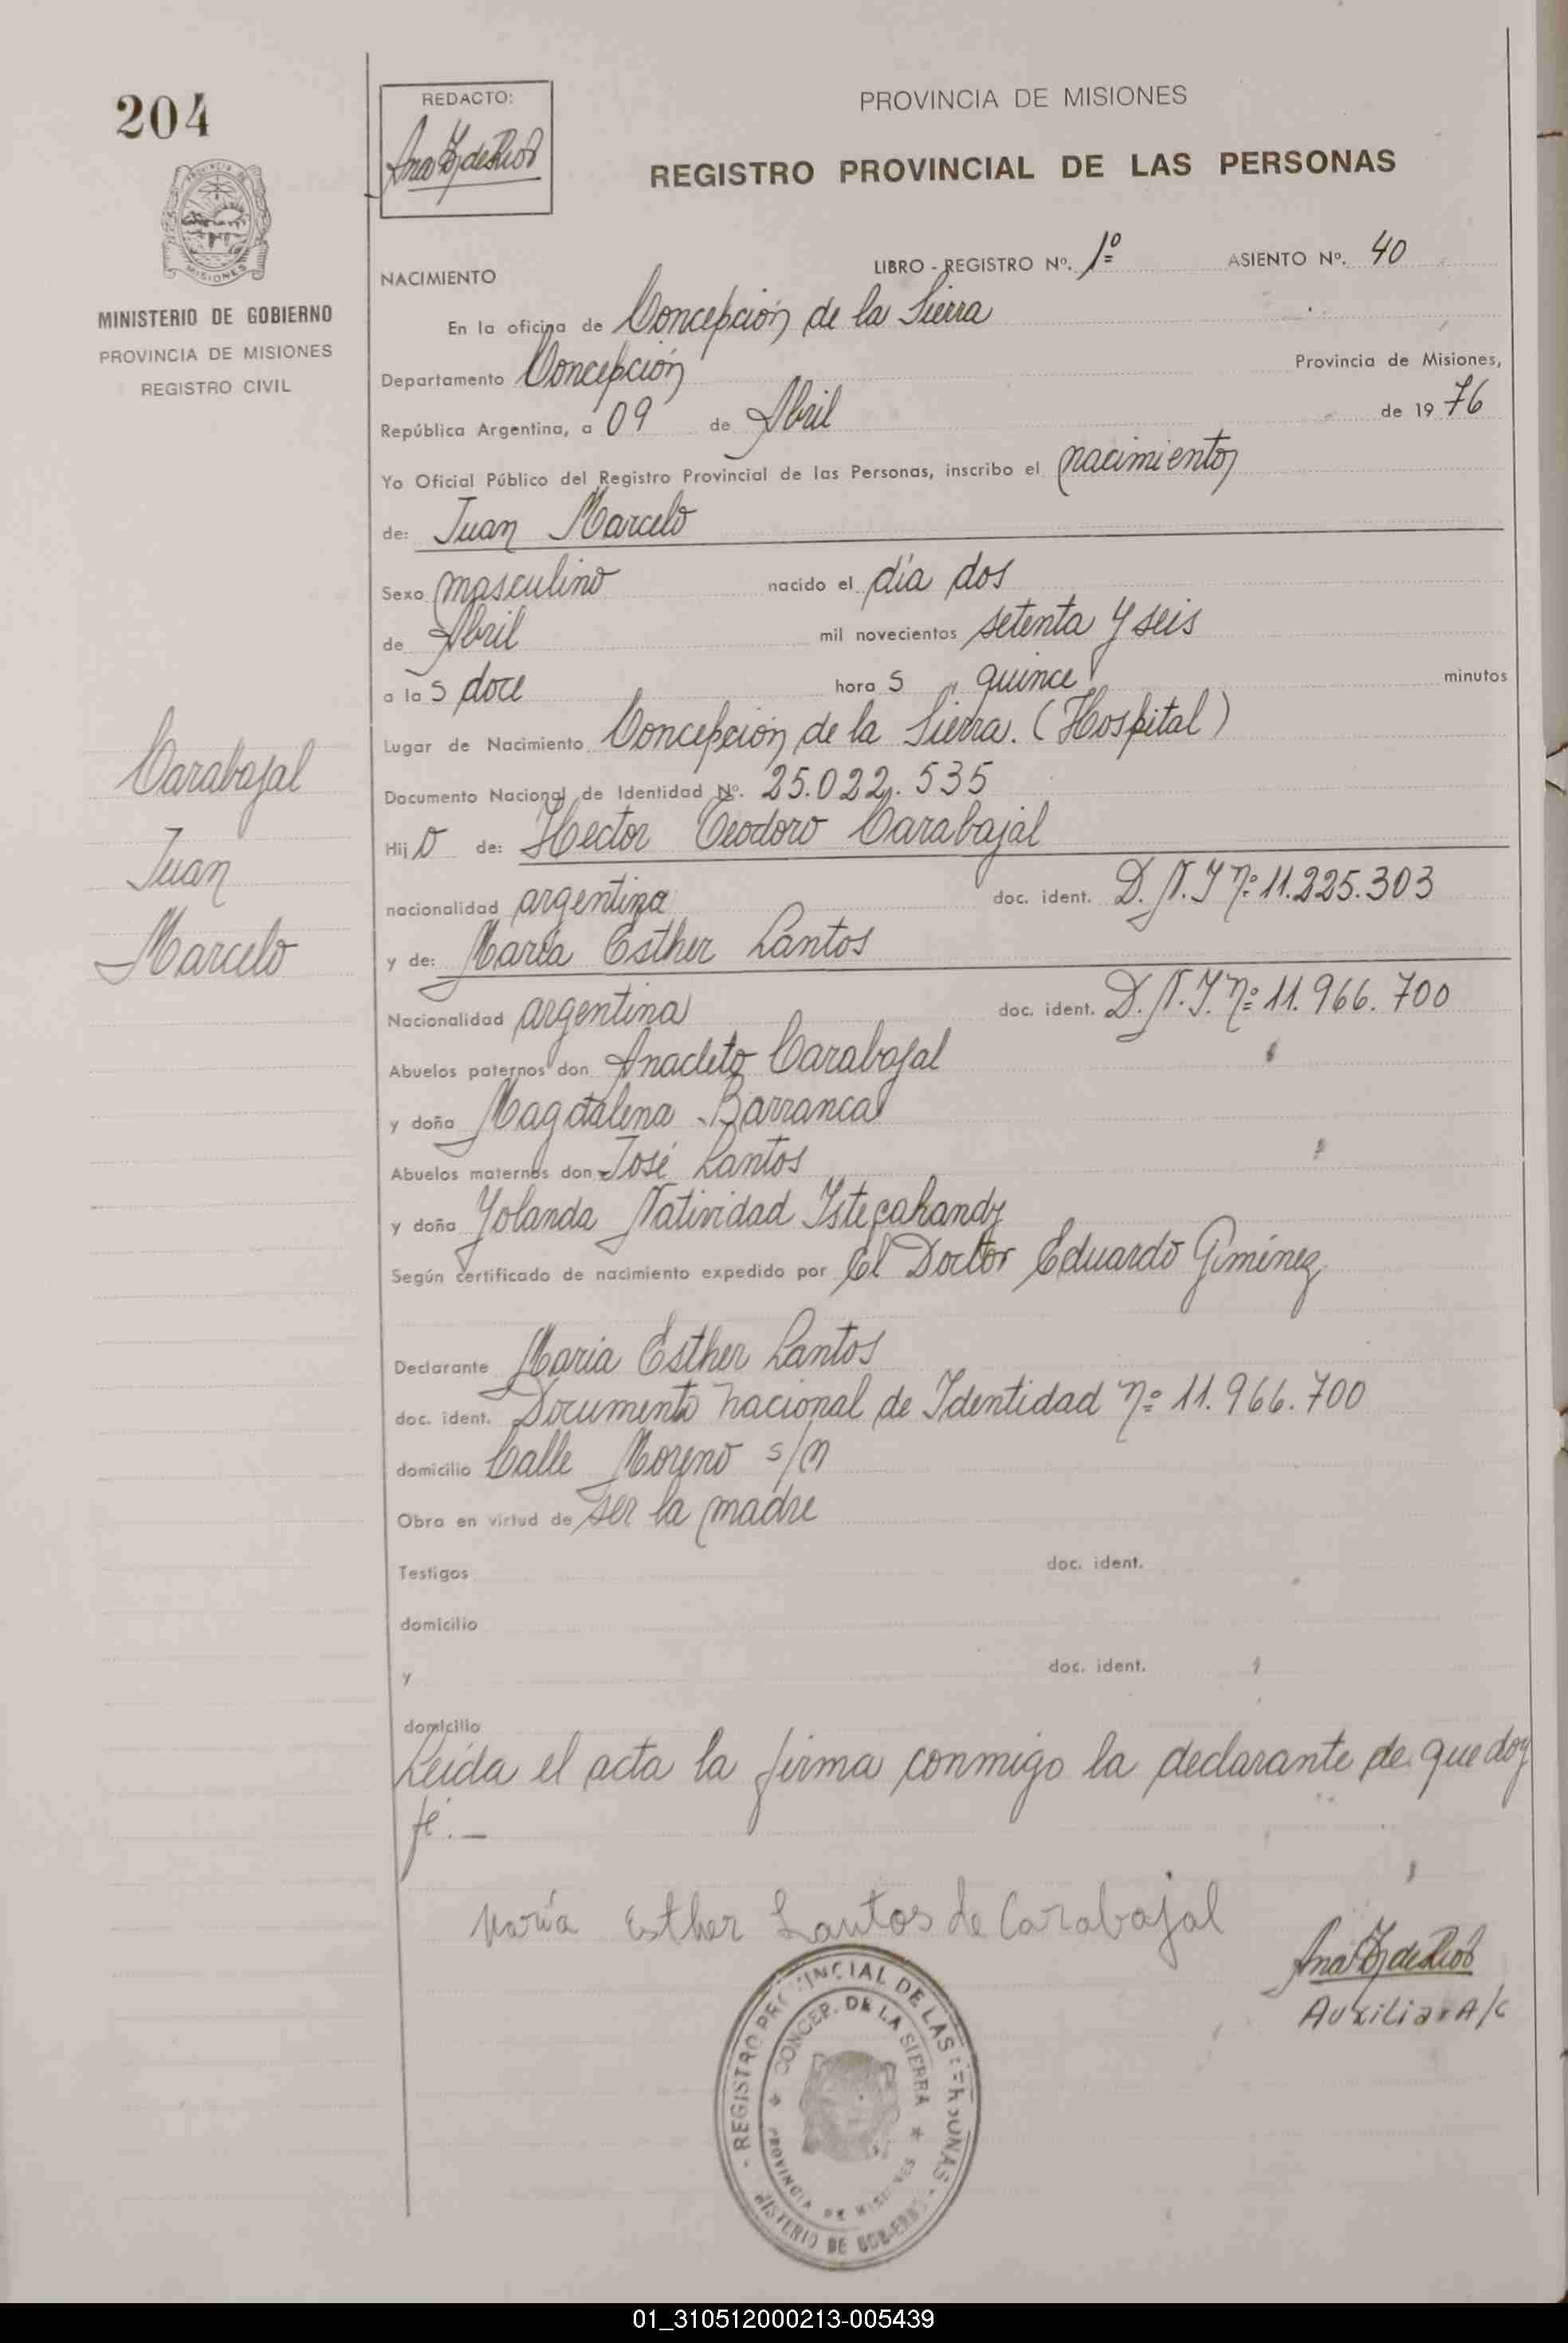 204
REDACTO:
PROVINCIA DE MISIONES
REGISTRO PROVINCIAL DE LAS PERSONAS
MISIONES
MINISTERIO DE GOBIERNO
PROVINCIA DE MISIONES
REGISTRO CIVIL
NACIMIENTO LIBRO - REGISTRO Nº. 1º ASIENTO Nº. 40
En la oficina de Concepción de la Sierra
Departamento Concepción Provincia de Misiones,
República Argentina, a 09 de Abril de 19 76
Yo Oficial Público del Registro Provincial de las Personas, inscribo el nacimiento
de: Juan Marcelo
Sexo masculino nacido el día dos
de Abril mil novecientos setenta y seis
a la s doce hora s quince minutos
Lugar de Nacimiento Concepción de la Sierra. (Hospital)
Documento Nacional de Identidad Nº. 25.022.535
Hij o de: Hector Teodoro Carabajal
nacionalidad argentina doc. ident. D.N.I Nº 11.225.303
y de: María Esther Santos
Nacionalidad argentina doc. ident. D.N.I. Nº 11.966.700
Abuelos paternos don Anacleto Carabajal
y doña Magdalena Barranca
Abuelos maternos don José Santos
y doña Yolanda Natividad
Según certificado de nacimiento expedido por El Doctor Eduardo Giménez
Declarante Maria Esther Santos
doc. ident. Documento nacional de Identidad Nº 11.966.700
domicilio Calle Moreno s/n
Obra en virtud de ser la madre
Testigos doc. ident.
domicilio
y doc. ident.
domicilio
Leída el acta la firma conmigo la declarante de que doy
fé.—
María Esther Santos de Carabajal
Auxiliar A/C
Carabajal
Juan
Marcelo
REGISTRO PROVINCIAL DE LAS PERSONAS
CONCEP. DE LA SIERRA
PROVINCIA DE MISIONES
MINISTERIO DE GOBIERNO
01_310512000213-005439